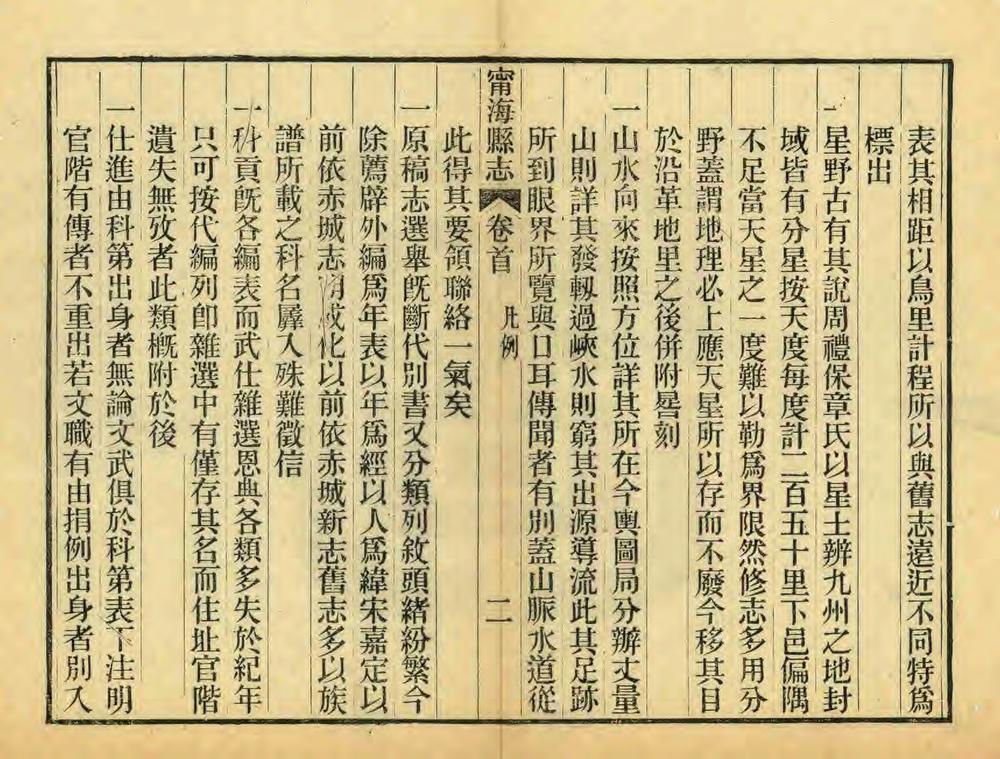 表其相距以鳥里計程所以與舊志遠近不同特爲
標出
一星野古有其說周禮保章氏以星土辨九州之地封
域皆有分星按天度每度計二百五十里下邑偏隅
不足當天星之一度難以勒爲界限然修志多用分
野蓋謂地理必上應天星所以存而不廢今移其目
於沿革地里之後併附晷刻
一山水向來按照方位詳其所在今輿圖局分辦丈量
山則詳其發軔過峽水則窮其出源導流此其足跡
所到眼界所覽與口耳傳聞者有別蓋山脈水道從
甯海縣志 卷首 凡例 二
此得其要領聯絡一氣矣
一原稿志選舉旣斷代別書又分類列敘頭緒紛繁今
除薦辟外編爲年表以年爲經以人爲緯宋嘉定以
前依赤城志明成化以前依赤城新志舊志多以族
譜所載之科名羼入殊難徵信
一科貢旣各編表而武仕雜選恩典各類多失於紀年
只可按代編列卽雜選中有僅存其名而仕址官階
遺失無攷者此類槪附於後
一仕進由科第出身者無論文武俱於科第表下注明
官階有傳者不重出若文職有由捐例出身者別入